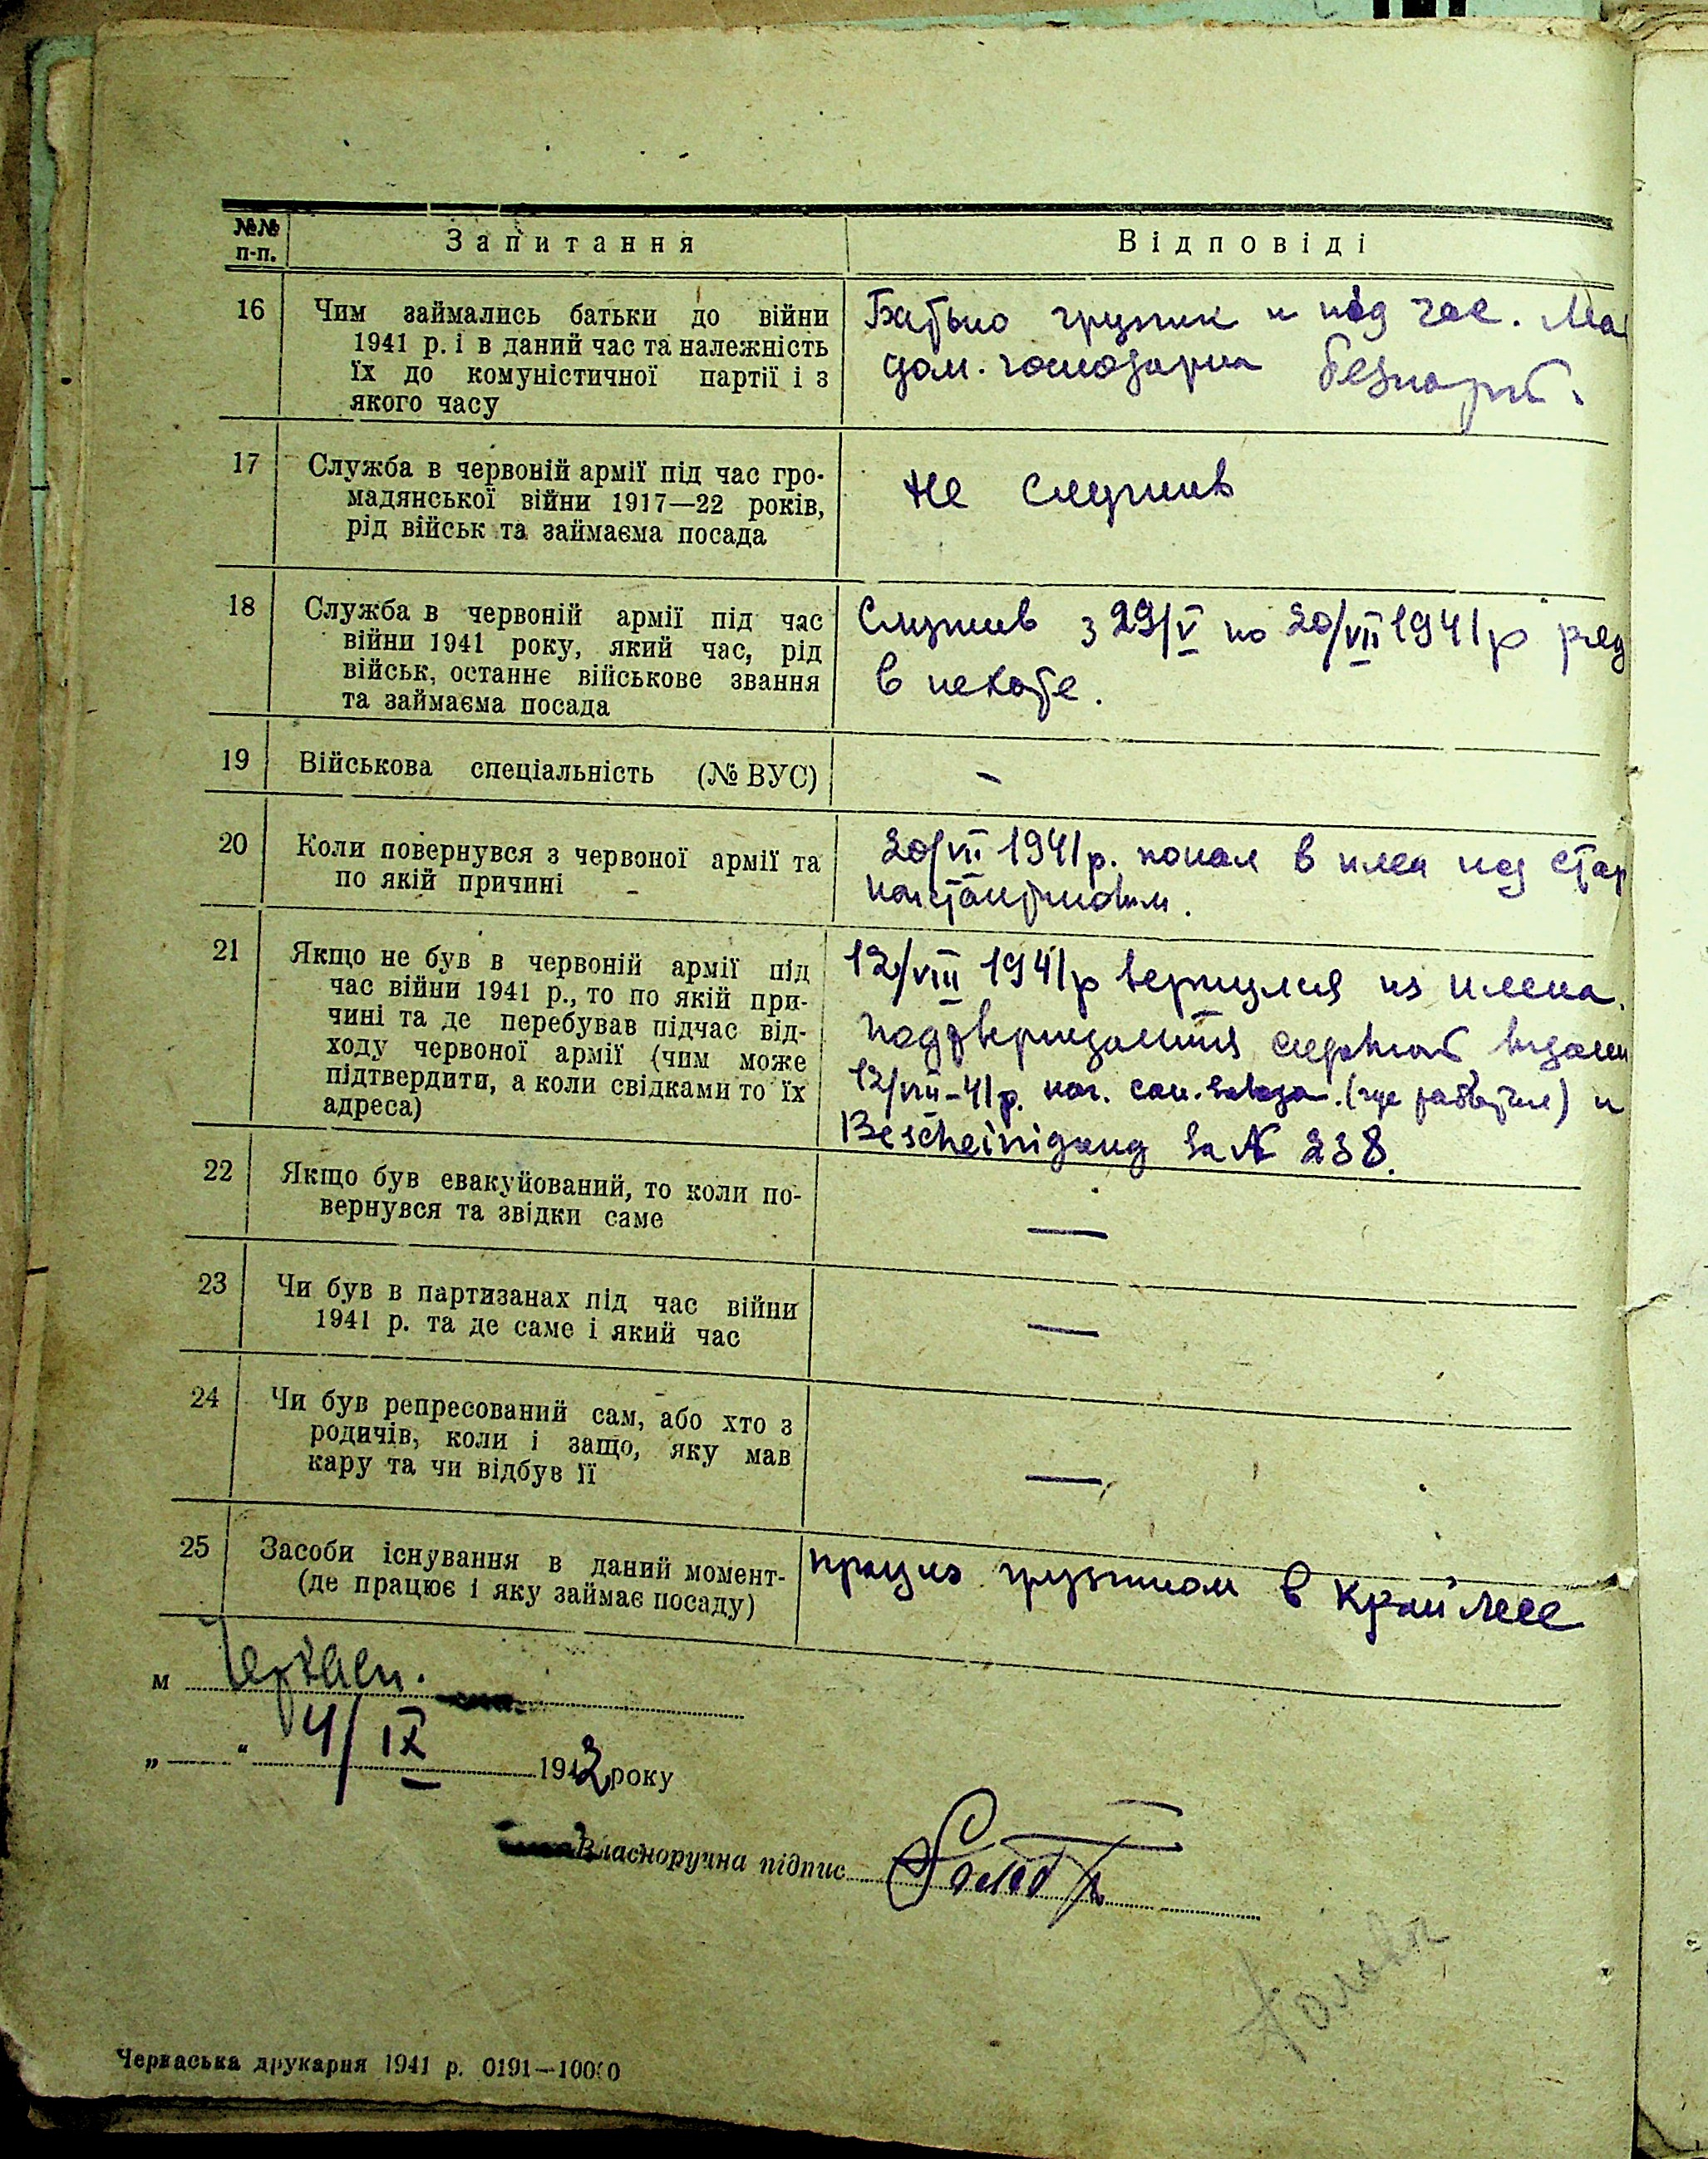 №№ п-п.
Запитання
Відповіді
16
Чим займались батьки до війни
1941 р. і в даний час та належність
їх до комуністичної партії і з
якого часу
Батько грузчик и під час. Ма
дом. господарка безпарт.
17
Служба в червоній армії під час гро-
мадянської війни 1917—22 років,
рід військ та займаєма посада
Не служив
18
Служба в червоній армії під час
війни 1941 року, який час, рід
військ, останнє військове звання
та займаєма посада
Служив з 29/V по 20/VII 1941 р ряд
в пехоте.
19
Військова спеціальність (№ ВУС)
–
20
Коли повернувся з червоної армії та
по якій причині
20/VII 1941 р. попал в плен под Стар
константиновым.
21
Якщо не був в червоній армії під
час війни 1941 р., то по якій при-
чині та де перебував підчас від-
ходу червоної армії (чим може
підтвердити, а коли свідками то їх
адреса)
12/VIII 1941 р вернулся из плена.
12/VIII-41 р. нач. сах. завода. (где работал) и
Bescheinigung за № 238.
22
Якщо був евакуйований, то коли по-
вернувся та звідки саме
—
23
Чи був в партизанах під час війни
1941 р. та де саме і який час
—
24
Чи був репресований сам, або хто з
родичів, коли і защо, яку мав
кару та чи відбув її
—
25
Засоби існування в даний момент-
(де працює і яку займає посаду)
працюю грузчиком в Крайлисе
м Черкаси.
„ “ 4/IX 1942 року
Власноручна підпис
Черкаська друкарня 1941 р. 0191—10000